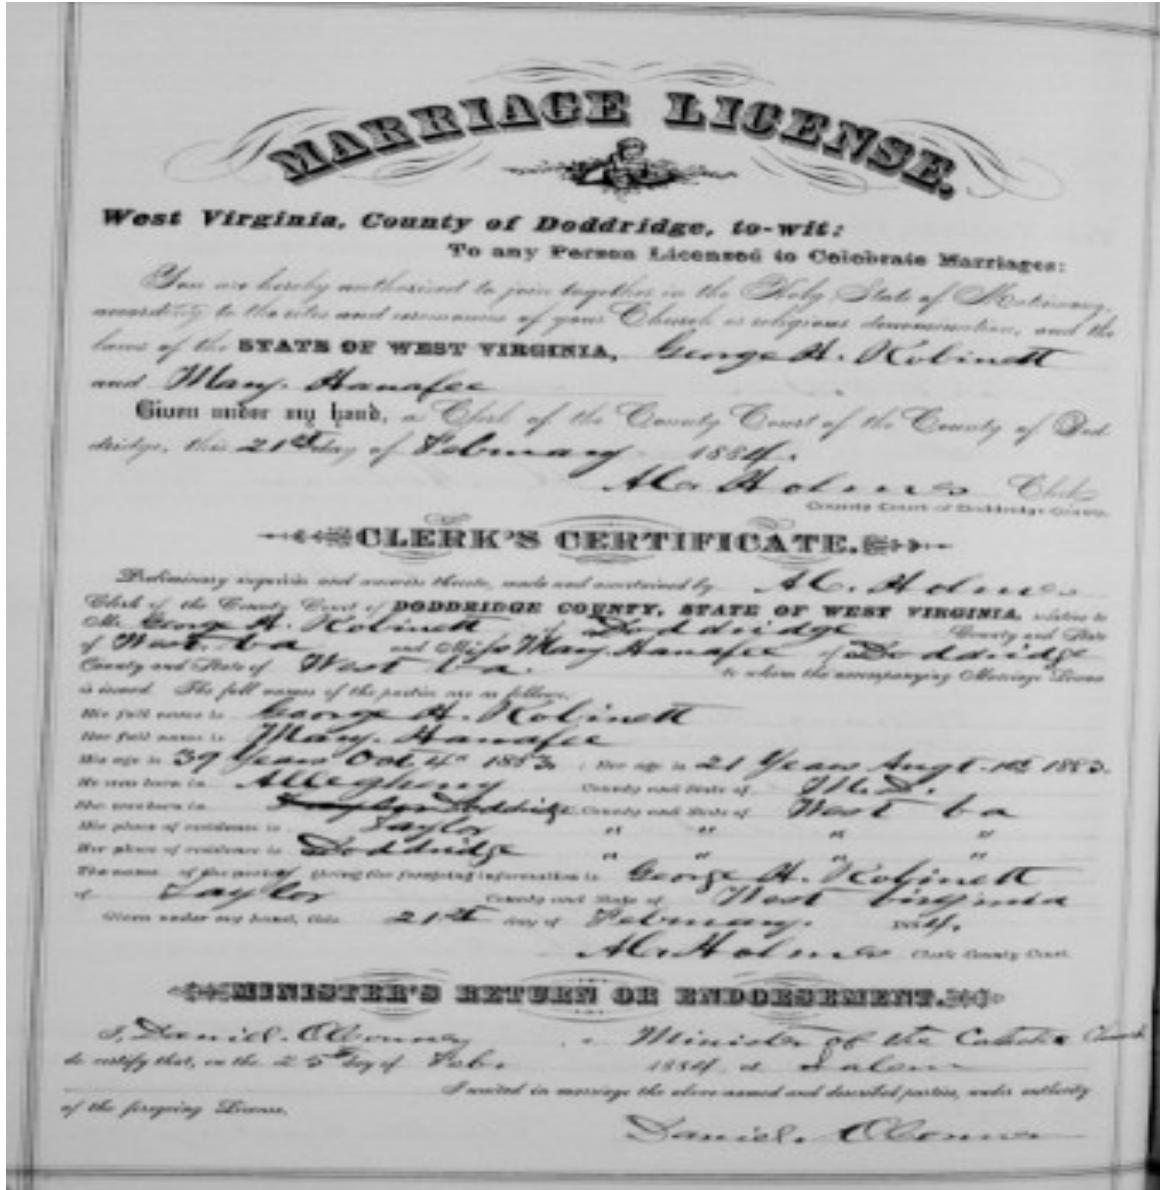 MARRIAGE LICENSE.
West Virginia, County of Doddridge, to-wit:
To any Person Licensed to Celebrate Marriages:
You are hereby authorized to join together in the Holy State of Matrimony,
according to the rites and ceremonies of your Church or religious denomination, and the
laws of the STATE OF WEST VIRGINIA, George H. Robinett
and Mary. Hanafee
Given under my hand, a Clerk of the County Court of the County of Dod-
dridge, this 21st day of February 1884.
Holmes Clerk
County Court of Doddridge County.
CLERK'S CERTIFICATE.
Preliminary inquiries and answers thereto, made and ascertained by Holmes
Clerk of the County Court of DODDRIDGE COUNTY, STATE OF WEST VIRGINIA, relative to
Mr. George H. Robinett of Doddridge County and State
of West. Va and Miss Mary. Hanafee of Doddridge
County and State of West Va. to whom the accompanying Marriage License
is issued. The full names of the parties are as follows:
His full name is George H. Robinett
Her full name is Mary. Hanafee
His age is 39 Years Oct 4th 1883. Her age is 21 Years Augt. 1883.
He was born in Allegheny County and State of M.D.
She was born in Doddridge County and State of West Va
His place of residence is Taylor " " " "
Her place of residence is Doddridge " " " "
The name of the party giving the foregoing information is George H. Robinett
of Taylor County and State of West Virginia
Given under my hand, this 21st day of February. 1884.
Holmes Clerk County Court.
MINISTER'S RETURN OR ENDORSEMENT.
I, Daniel. OConner a Minister of the Catholic Church
do certify that, on the 25th day of Feb. 1884, at Salem
I united in marriage the above named and described parties, under authority
of the foregoing License.
Daniel. OConner